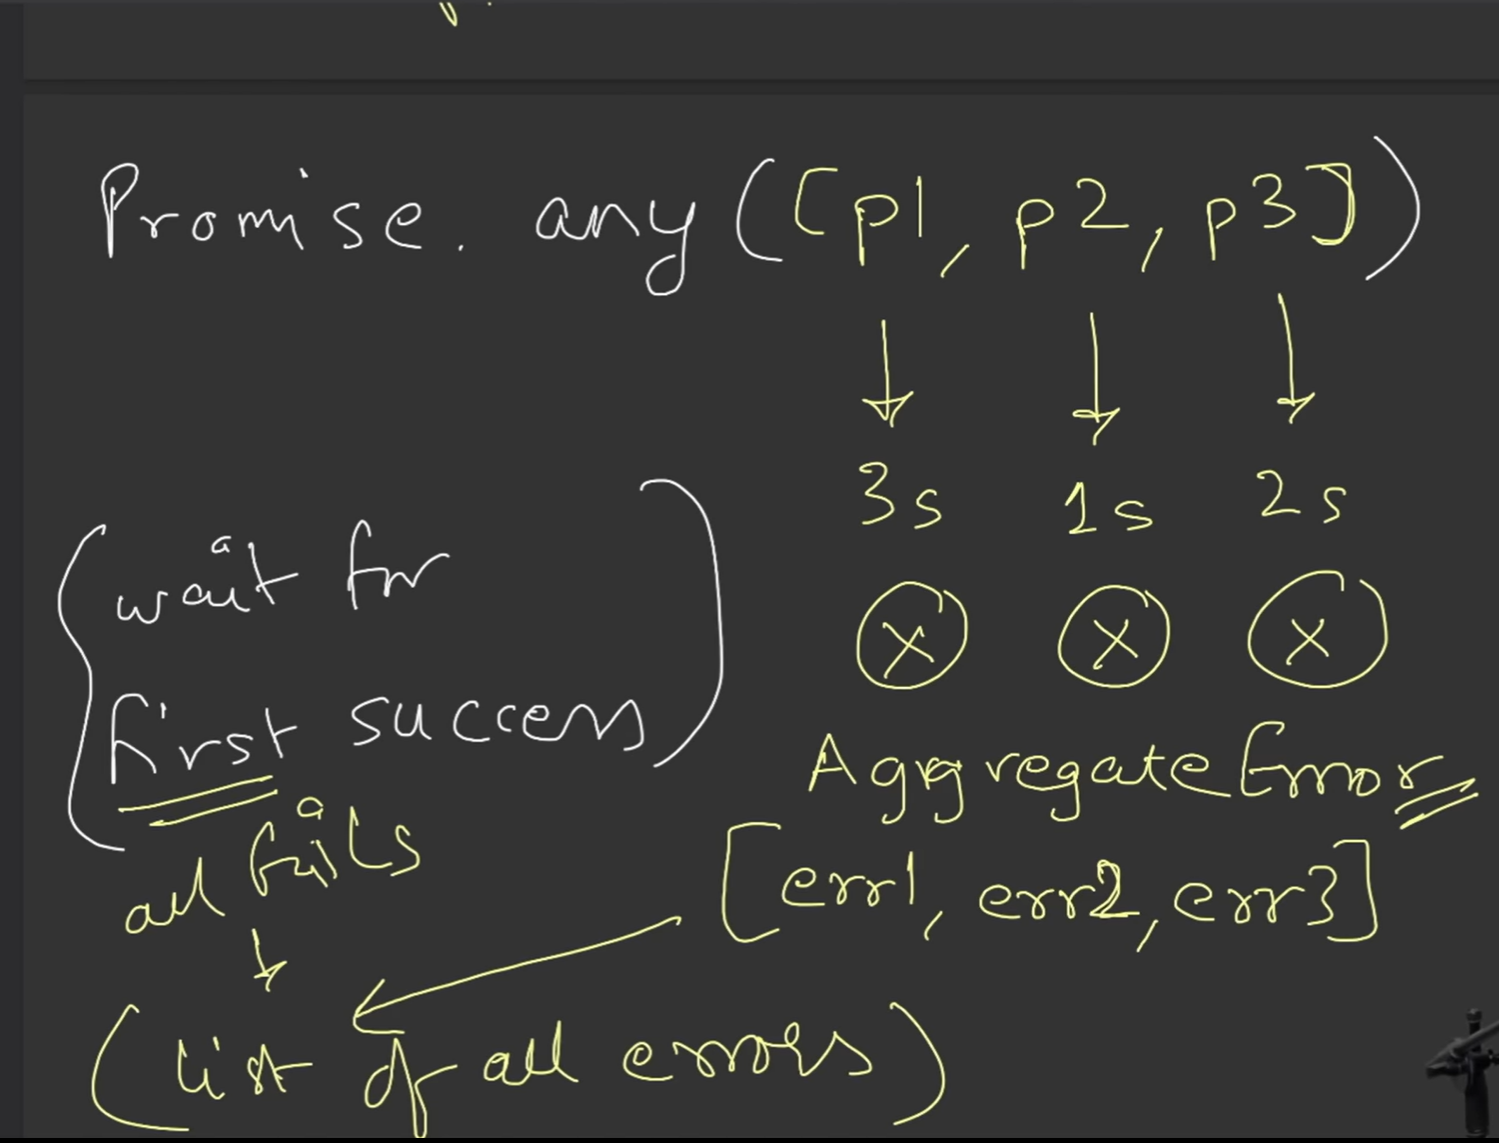 Promise. any([p1, p2, p3])
3s 1s 2s
wait for
first success
x x x
AggregateError
all fails
[err1, err2, err3]
(list of all errors)